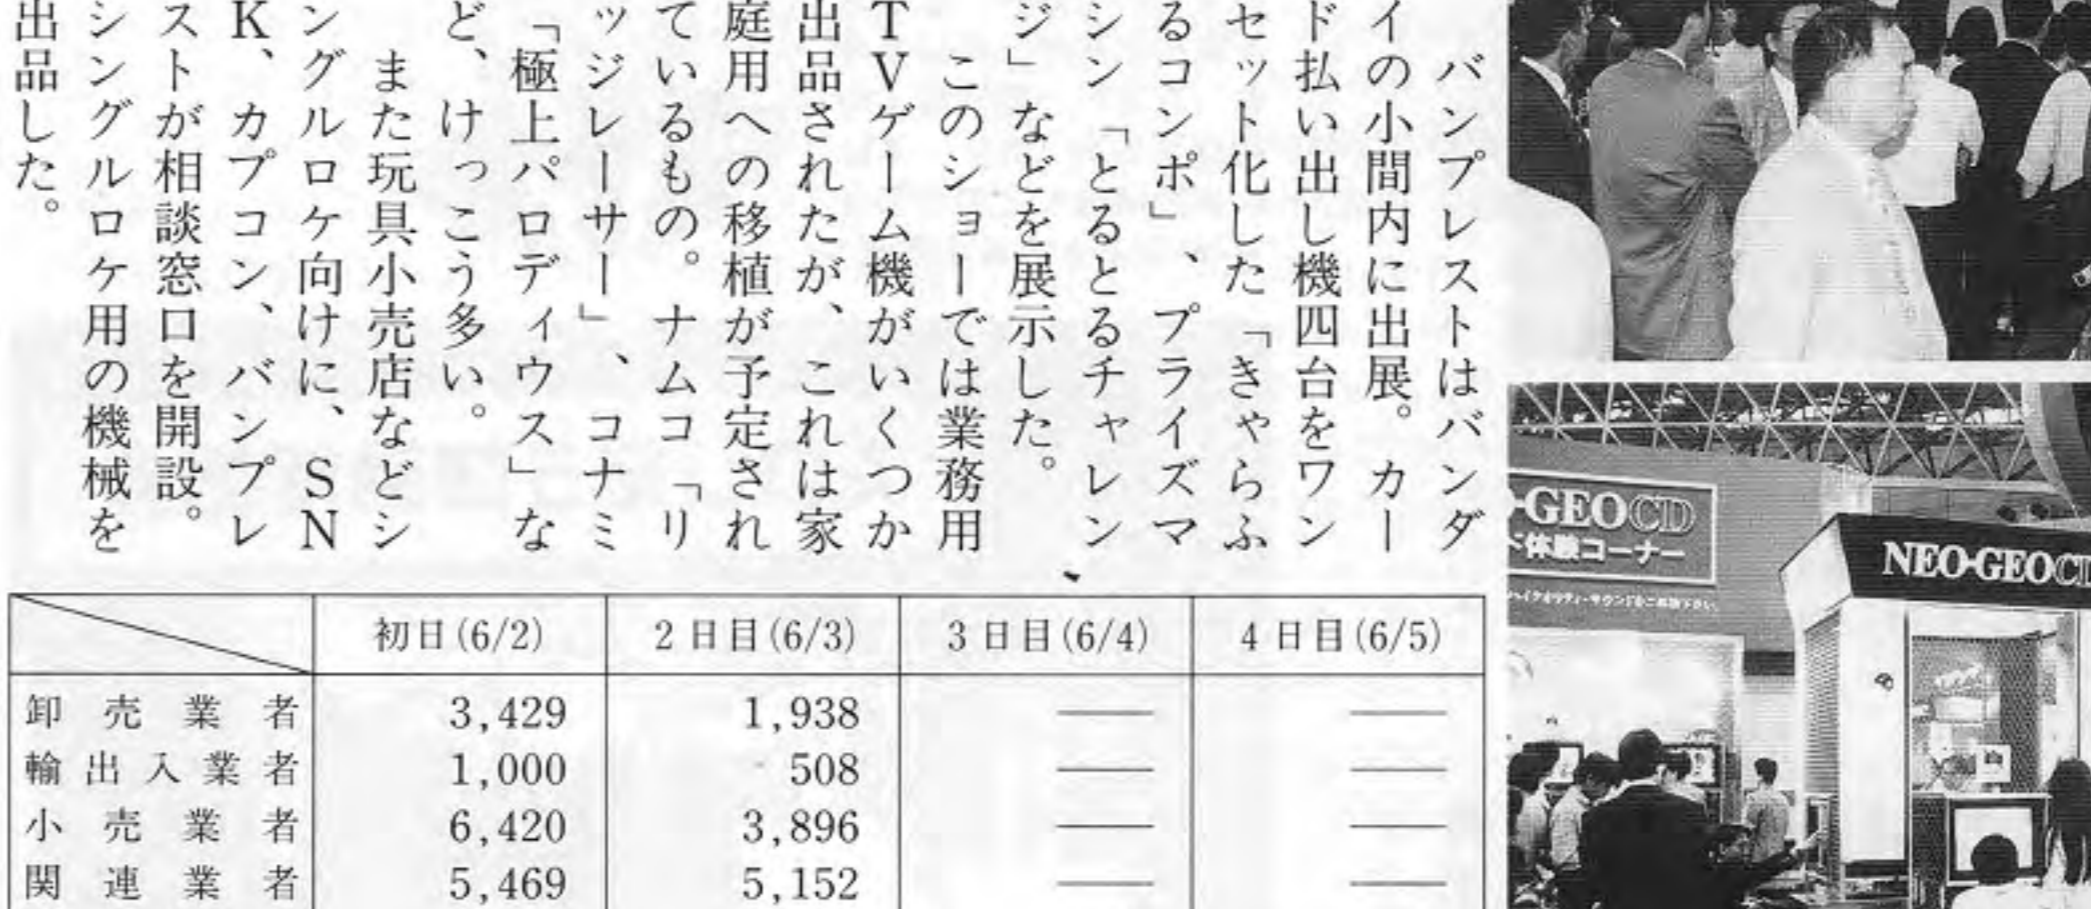 バンプレストはバンダ
イの小間内に出展。カー
ド払い出し機四台をワン
セット化した「きゃらふ
るコンポ」、プライズマ
シン「とるとるチャレン
ジ」などを展示した。
このショーでは業務用
TVゲーム機がいくつか
出品されたが、これは家
庭用への移植が予定され
ているもの。ナムコ「リ
ッジレーサー」、コナミ
「極上パロディウス」な
ど、けっこう多い。
また玩具小売店などシ
ングルロケ向けに、SN
K、カプコン、バンプレ
ストが相談窓口を開設。
シングルロケ用の機械を
出品した。
-GEOCD
体験コーナー
NEO•GEOCD
初日(6/2) 2日目(6/3) 3日目(6/4) 4日目(6/5)
卸売業者 3,429 1,938 —— ——
輸出入業者 1,000 508 —— ——
小売業者 6,420 3,896 —— ——
関連業者 5,469 5,152 —— ——